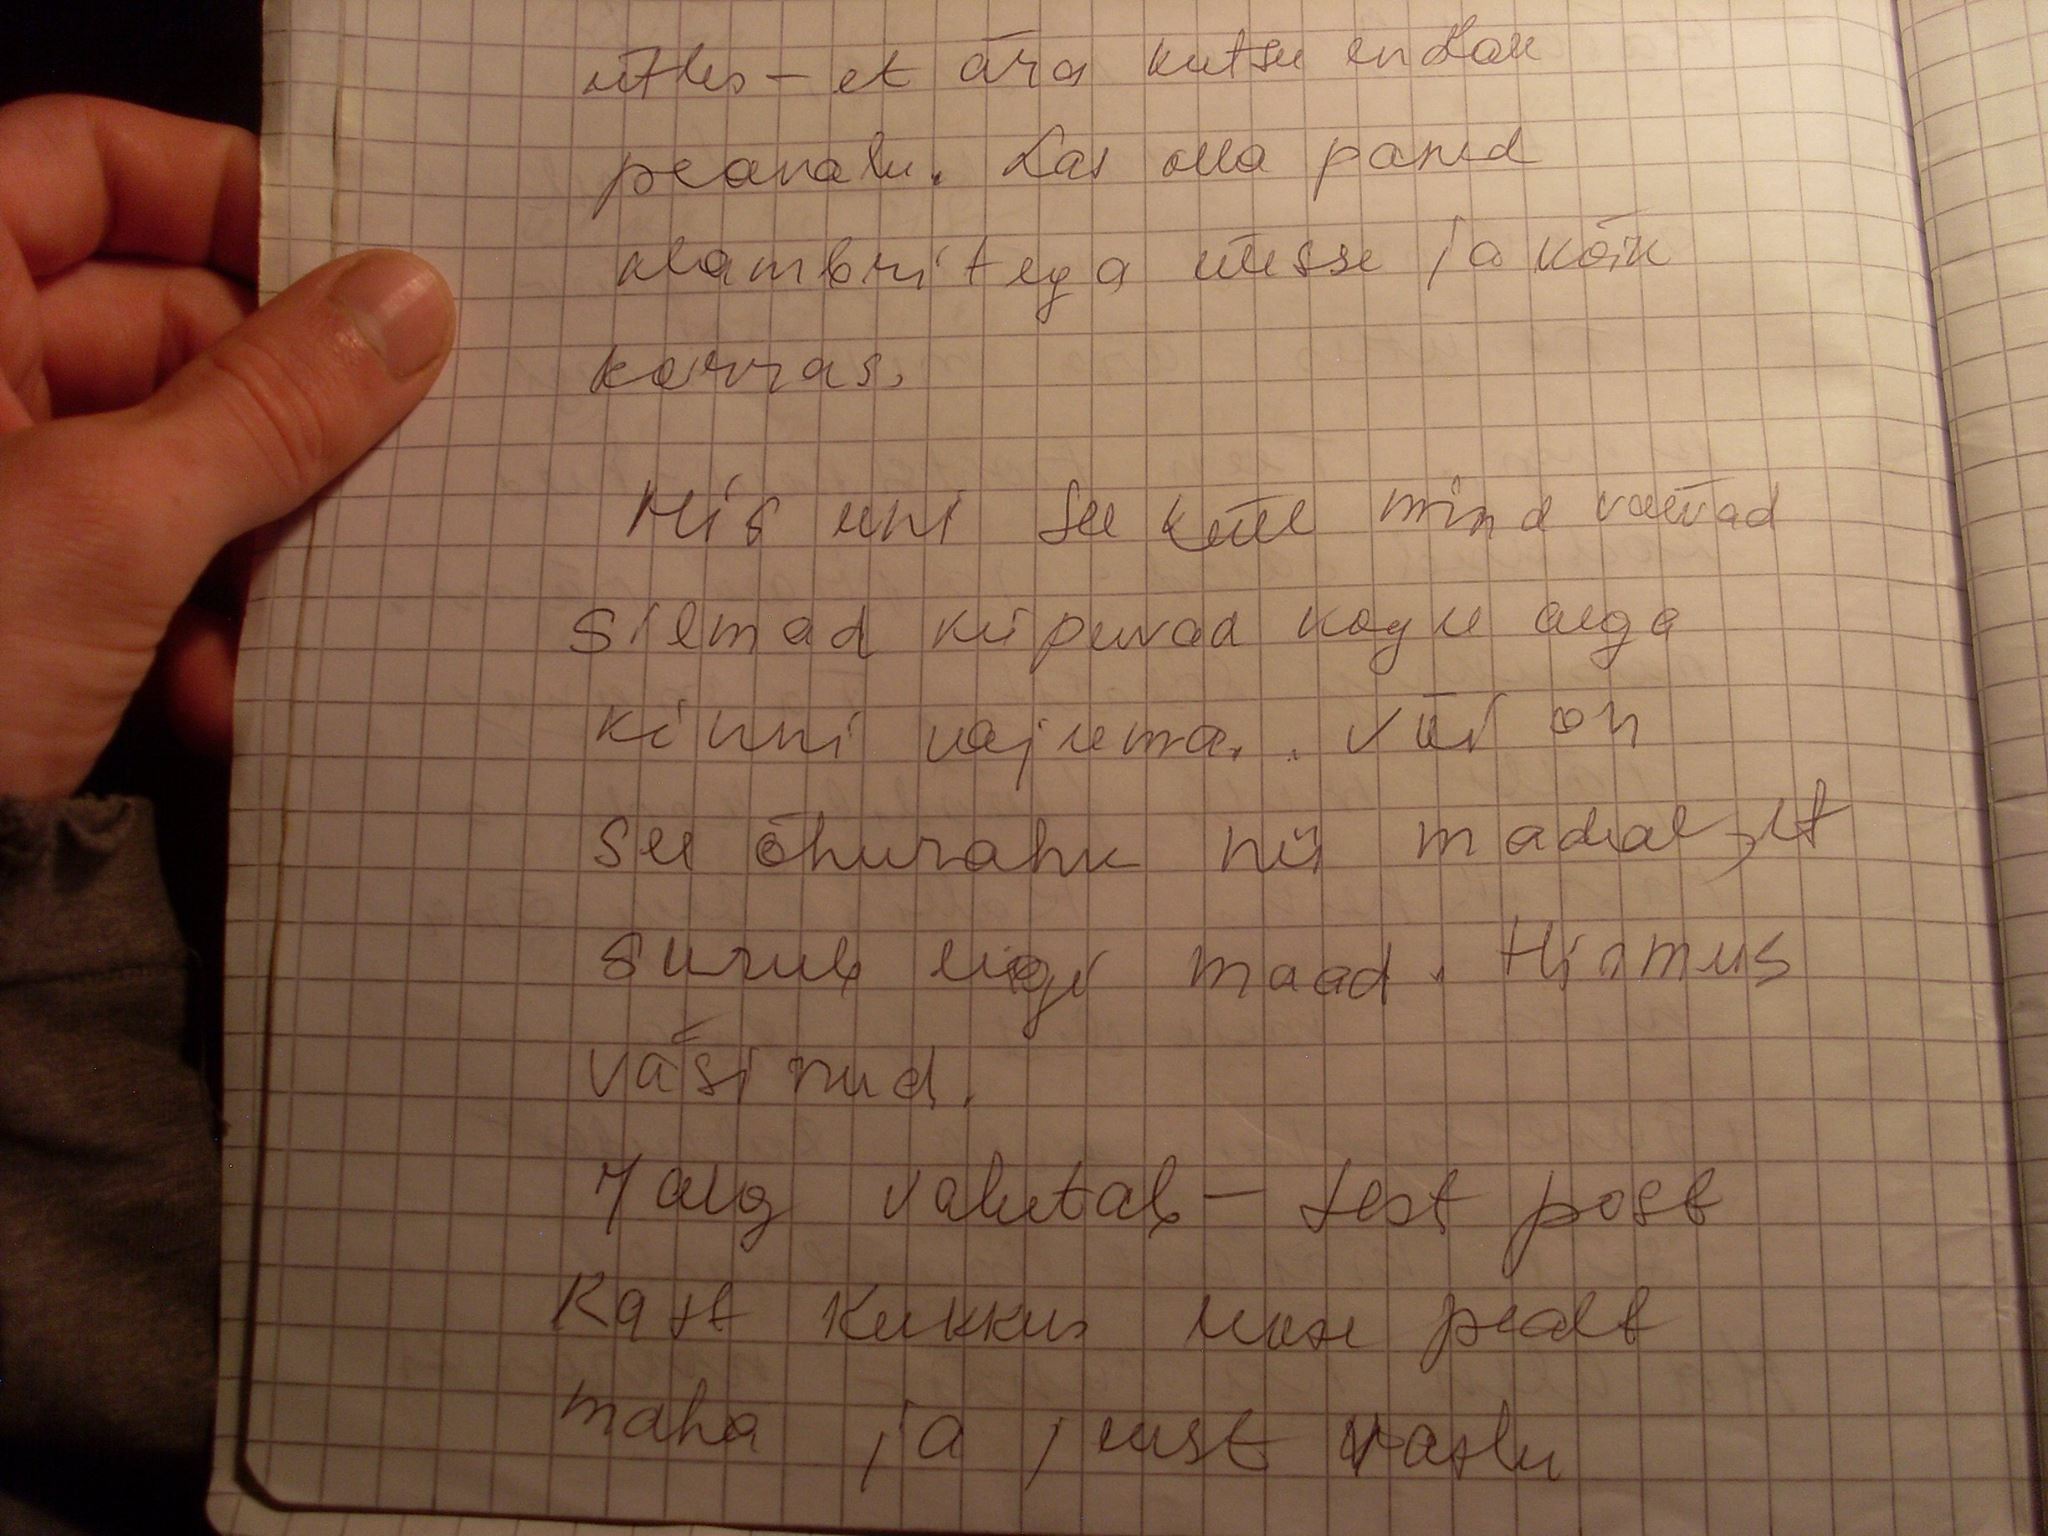 ütles – et ära kutsu endale
peavalu. Las olla paned
klambritega uuesse ja kõik
korras.
Mis uni see küll mind vaevad
silmad kipuvad kogu aega
kinni vajuma. Või on
see õhurõhk nii madal, et
surub ligi maad. Hirmus
väsinud.
Jalg valutab – sest post
kast kukkus ukse pealt
maha ja just vastu